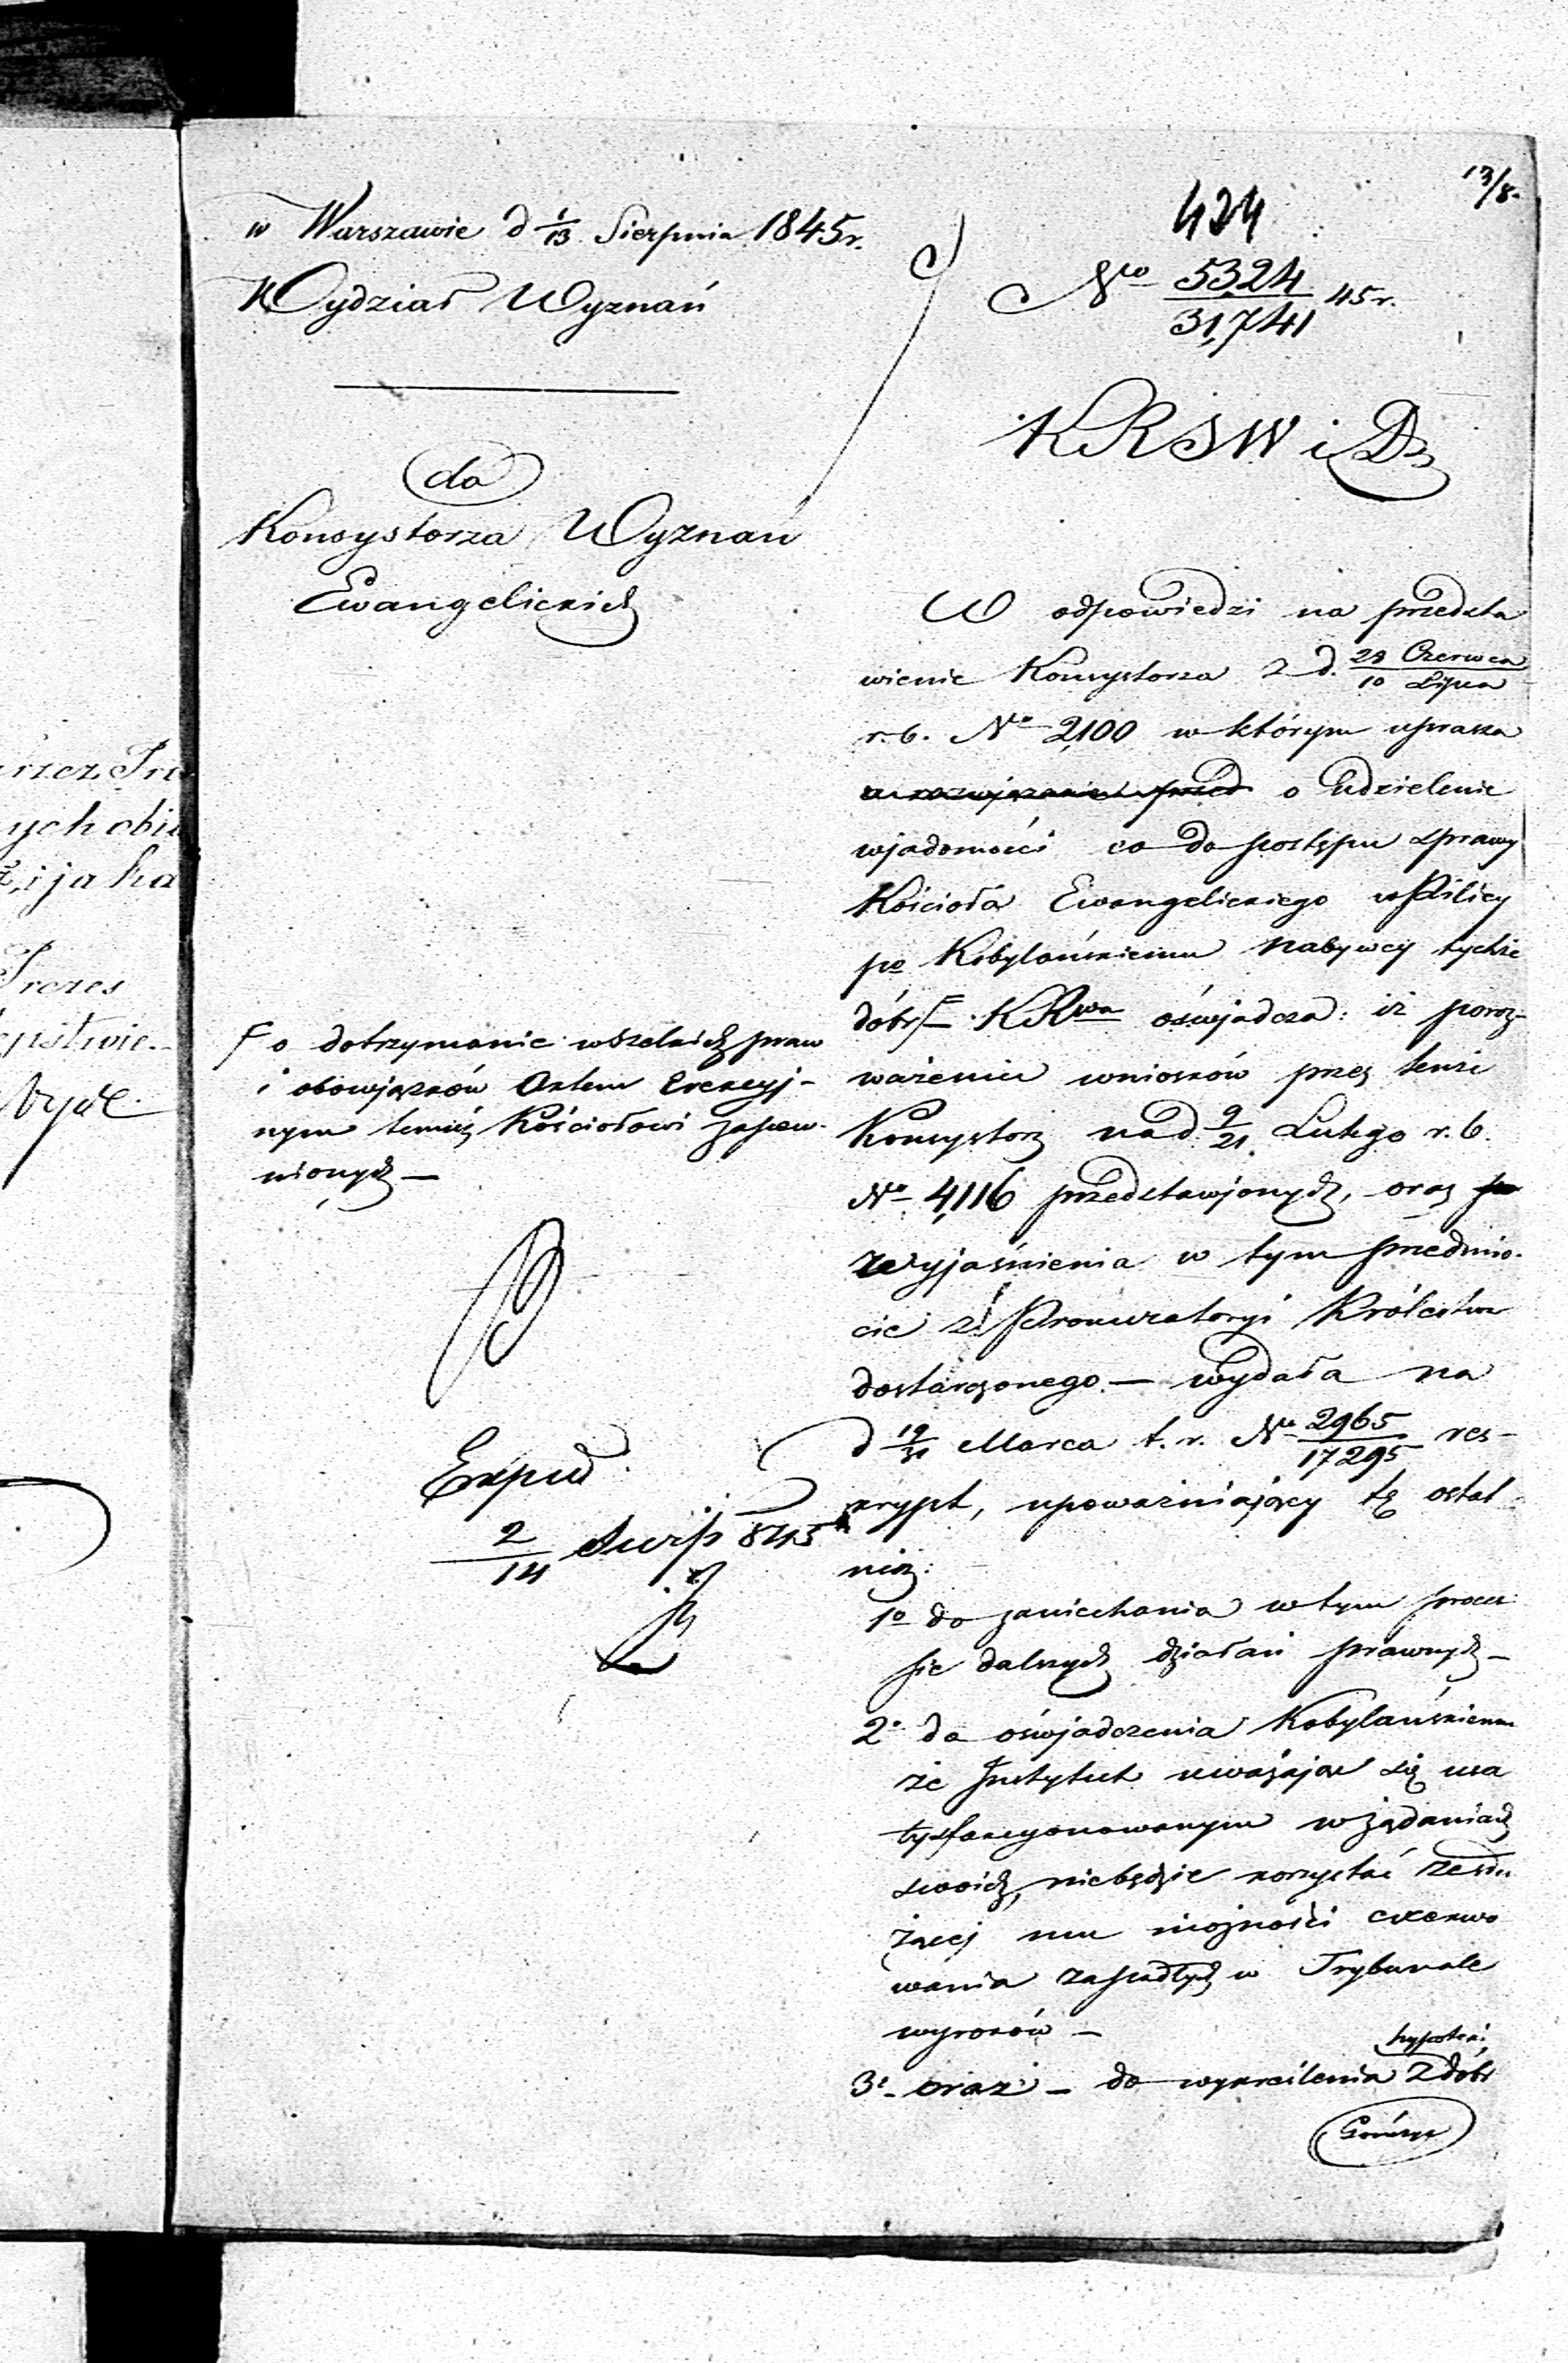 rzez Pre
ych obi
i jaka
Prezes
Wydz.
13/8.
w Warszawie d 1/13 Sierpnia 1845 r.
Wydział Wyznań
do
Konsystorza Wyznań
Ewangelickich
424
No 5324/31,741 45 r.
KRSW i D
W odpowiedzi na przedsta
wienie Konsystorza z d. 28 Czerwca/10 Lipca
r. b. No 2,100 w którym uprasza
o udzielenie
wjadomości co do postępu sprawy
Kościoła Ewangelickiego w Pilicy
po Kobylańskiemu nabywcy tychże
dóbr F KRwa oświadcza: iż poroz-
ważeniu wniosków przez tenże
Konsystorz na d. 9/21 Lutego r. b.
No 4,116 przedstawjonych, oraz
wyjaśnienia w tym przedmio-
cie z Prokuratoryi Królestwa
dostarczonego — wydała na
d 19/31 Marca t. r. No 2965/17295 res-
krypt, upoważniający tę ostat
nią:
1o do zaniechania w tym proces
sie dalszych działań prawnych —
2o do oświadczenia Kobylańskiemu
że Instytut uważając się usa
tysfakcyonowanym w żądaniach
swoich, niebędzie korzystać ze słu
żącej mu możności exekwo
wania zapadłych w Trybunale
wyroków —
3o oraz — do wykreślenia z hypoteki dóbr
F o dotrzymanie wszelkich praw
i obowjązków Aktem Erekcyj-
nym temuż Kościołowi zapew-
nionych —
Exped
2/14 Sierp 845